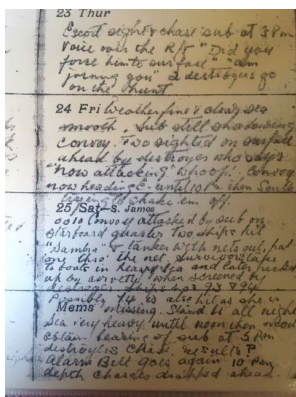 23 Thur
Escort sight & chase sub at 3 8 pm
Voice over the R/T "Did you
force him to surface" "am
joining you" 2 destroyers go
on the hunt
24 Fri Weather fine & clear sea
smooth. Sub still shadowing
convoy. Two sighted on surface
ahead by destroyer who says
"Now attacking" Whoof! Convoy
now heading E - until 10 PM then South
to shake em off.
25 Sat—S. James
0010 Convoy attacked by sub on
starboard quarter two ships hit
"Jamba" & tanker with nets out, put
one thro' the net. Survivors take
to boats in heavy sea and later picked
up by when screened by
93 & 94
Possibly 14 is also hit as she is
Mems missing. Stand by all night
Sea very heavy until noon then
obtain bearing of sub at 5 PM
destroyers chase results ?
Alarm Bell goes again 10 PM
depth charges dropped ahead.